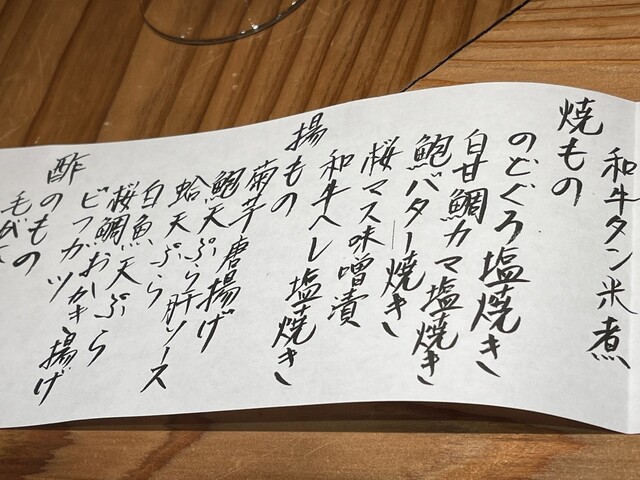 和牛タン米煮
焼もの
のどぐろ塩焼き
白甘鯛カマ塩焼き
鮑バター焼き
桜マス味噌漬
和牛ヘレ塩焼き
揚もの
菊芋唐揚げ
鮑天ぷら肝ソース
蛤天ぷら
白魚天ぷら
桜鯛おかき揚げ
ビフカツ
酢のもの